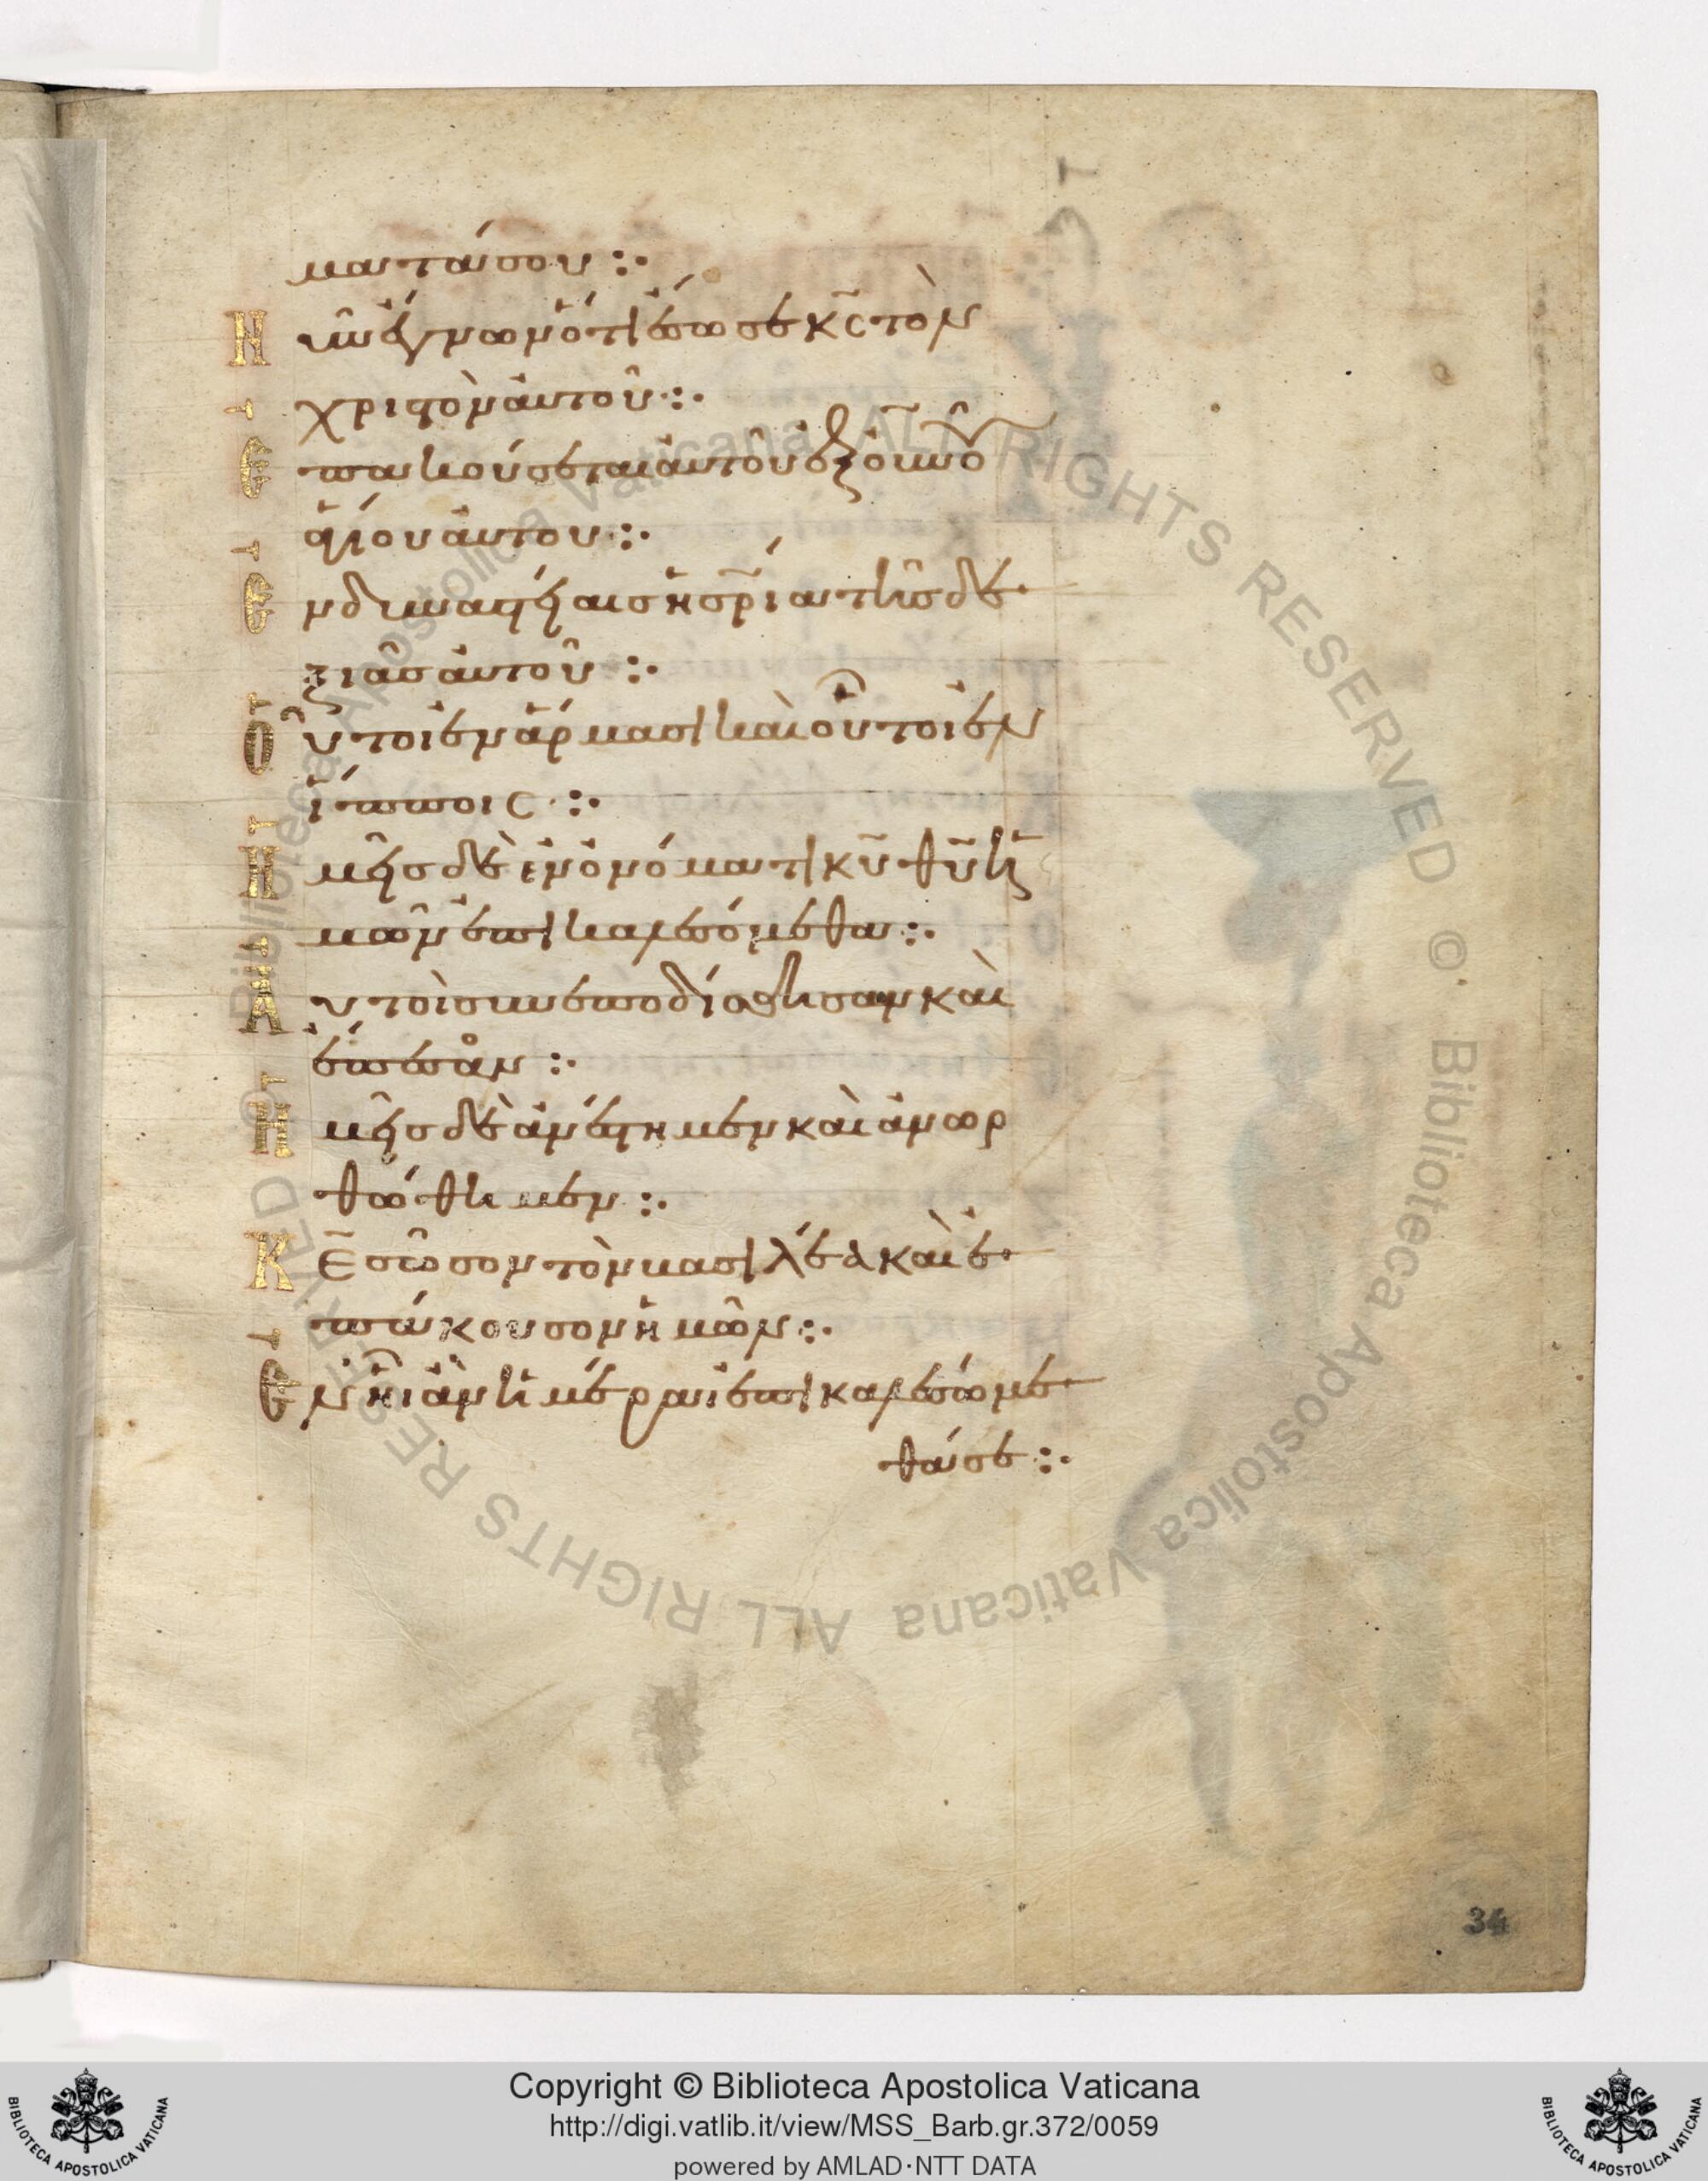 ματάσου :·
Νῦν ἔγνων ὅτι ἔσωσε κ̅ς τὸν
χριστὸν ἀυτοῦ :·
Επακούσεται ἀυτοῦ ἐξ ὀυν̅ο̅ῦ
ἁγίου ἀυτου :·
Εν δυναστείαις ἡ σ̅ρ̅ία τῆς δε
ξιᾶς ἀυτοῦ :·
Οὗτοι ἐν ἅρμασι καὶ οὗτοι ἐν
ἵπποις :·
Ημεῖς δὲ ἐν ὀνόματι κ̅υ̅ θ̅υ̅ ἡ
μῶν ἐπικαλεσόμεθα :·
Αυτοὶ συνεποδίσθησαν καὶ
ἔπεσὰν :·
Ημεῖς δὲ ἀνέστημεν καὶ ἀνωρ
θώθημεν :·
Κ̅Ε̅ σῶσον τὸν βασιλέα καὶ ἐ
πάκουσον ἡμῶν :·
Εν ἧι ἂν ἡμέραι ἐπικαλεσώμε
θά σε :·
34
Copyright © Biblioteca Apostolica Vaticana
http://digi.vatlib.it/view/MSS_Barb.gr.372/0059
powered by AMLAD·NTT DATA
BIBLIOTECA APOSTOLICA VATICANA
BIBLIOTECA APOSTOLICA VATICANA
© Biblioteca Apostolica Vaticana ALL RIGHTS RESERVED
© Biblioteca Apostolica Vaticana ALL RIGHTS RESERVED